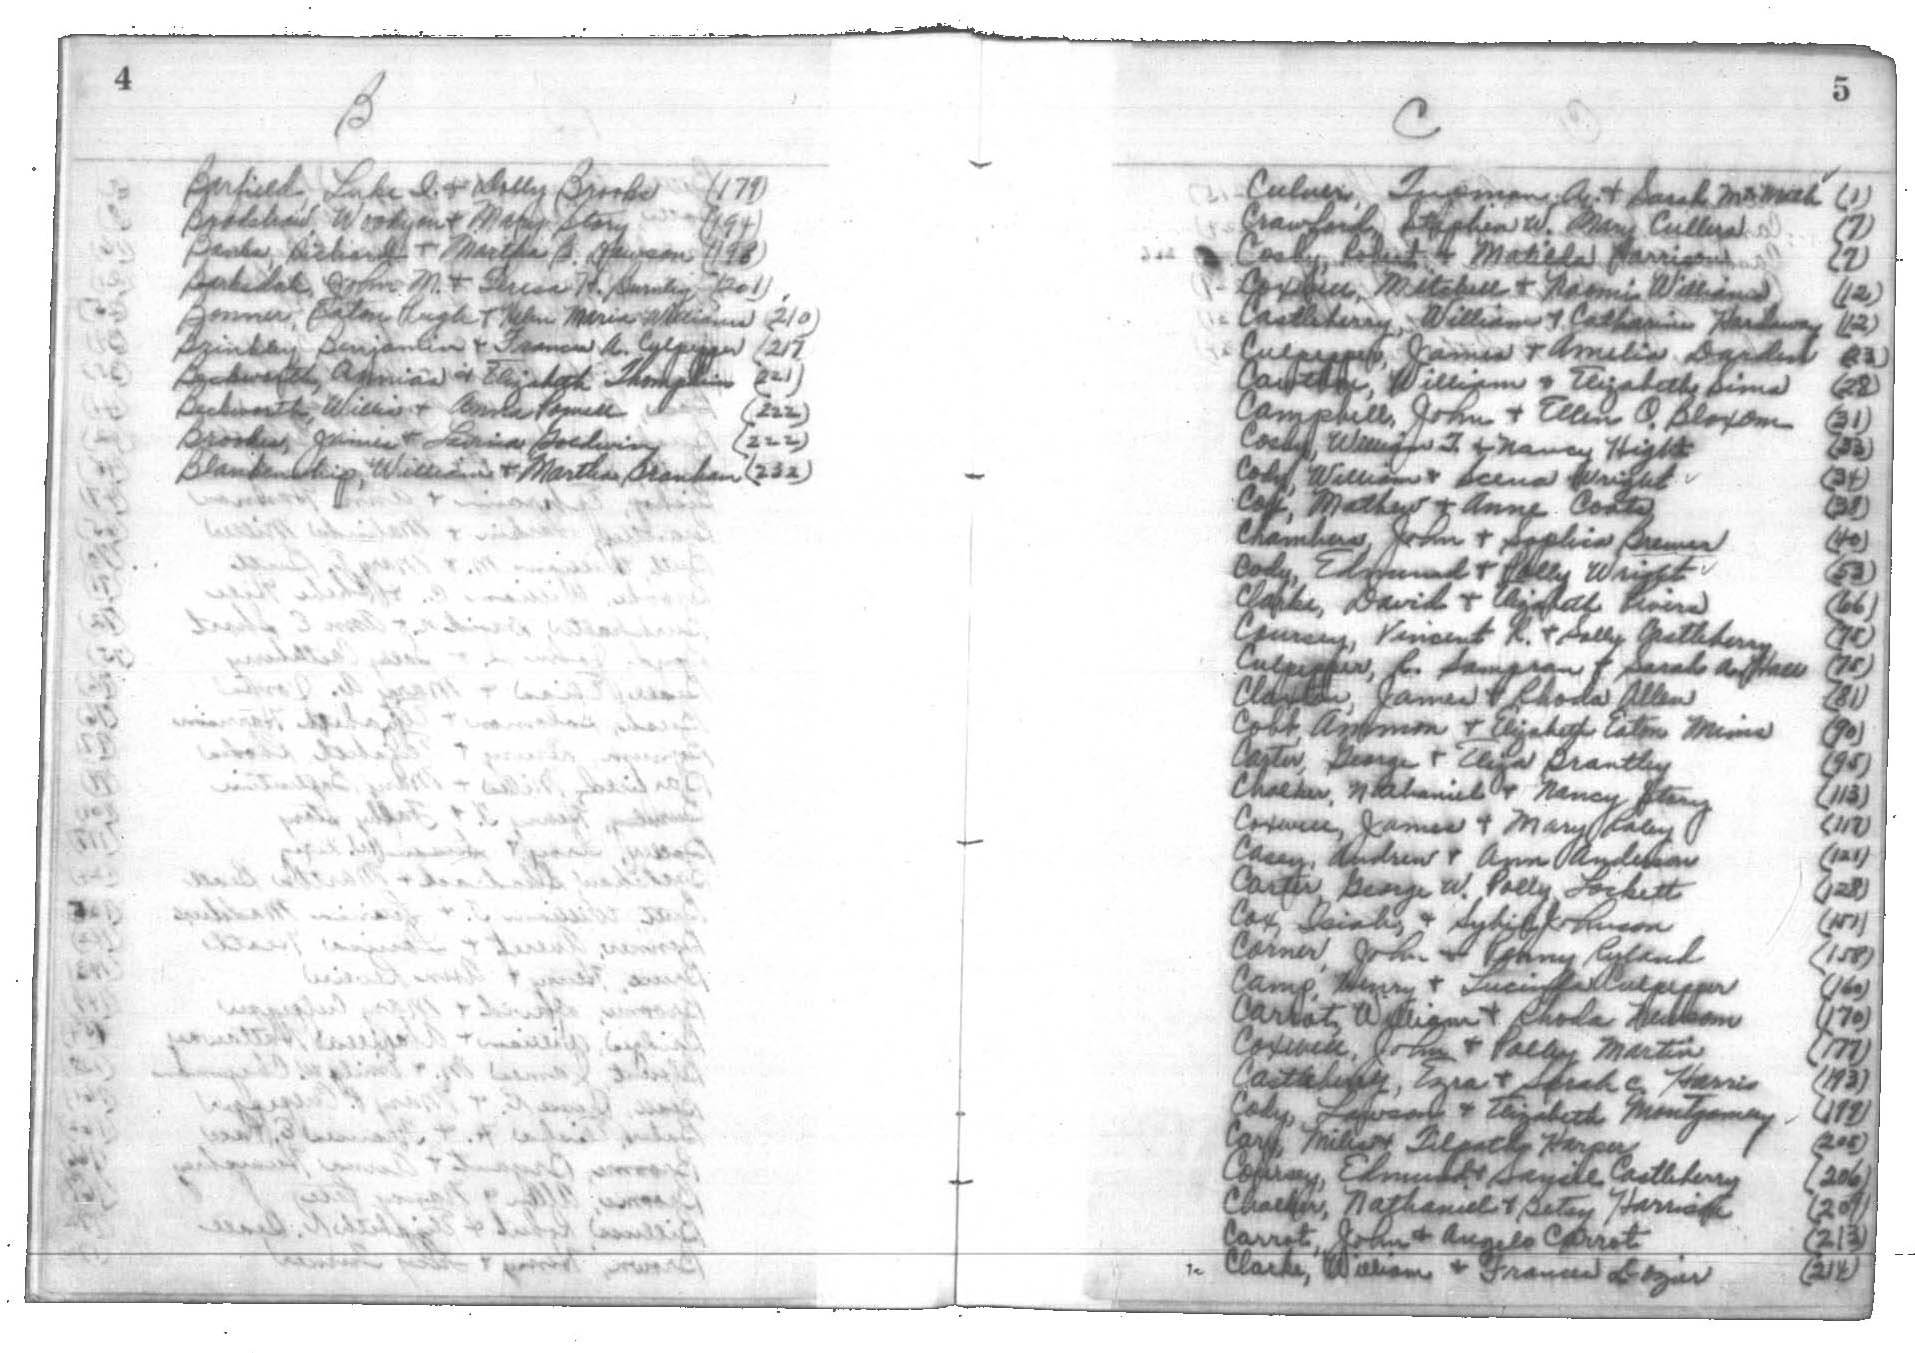 4
B
Barfield, Luke I. & Dolly Brooks (179)
Bradshaw, Woodyan & Mary Story (194)
Banks, Richard & Martha B. Dawson (198)
Barksdale, John M. & Teresa H. Burnley (201)
Bonner, Eaton Pugh & Helen Maria Williams (210)
Brinkley, Benjamin & Frances A. Culpepper (217
Beckworth, Annias & Elizabeth Thompkins (221)
Beckworth, Willis & Anna Powell (222)
Brookes, James & Lavina Goodwin (222)
Blankenship, William & Martha Branham (232)
5
C
Culver, A. & Sarah (1)
Crawford, Stephen W. Mary Cullers (7)
Cosby, Robert & Matilda Harrison (7)
Coxwell, Mitchell & Naomi Williams (12)
Castleberry, William & Catharine Hardaway (12)
Culpepper, James & Amelia Darden (23)
William & Elizabeth Sims (28)
Campbell, John & Ellen O. Bloxom (31)
William T. & Nancy Hight (33)
Cody, William & Scena Wright (34)
Cox, Mathew & Anne Coats (38)
Chambers, John & Sophia Bremer (40)
Cody, Edmund & Polly Wright (53)
Clarke, David & Elizabeth Rivers (66)
Coursey, Vincent R. & Sally Castleberry (75)
Culpepper, & Sarah Ann Hall (75)
James & Rhoda Allen (81)
Cobb, Ammon & Elizabeth Eaton Mims (90)
Carter, George & Eliza Brantley (95)
Chalker, Nathaniel & Nancy Story (113)
Coxwell, James & Mary Raley (117)
Casey, Andrew & Ann Anderson (121)
Carter, George W. Polly Lockett (128)
Cox, Isiah, & Sybil Johnson (151)
Corner, John & Ryland (158)
Camp, Henry & Lucinda Culpepper (160)
Carrot, William & Rhoda Newsom (170)
Coxwell, John & Polly Martin (177)
Castleberry, Ezra & Sarah C. Harris (193)
Cody, Lawson & Elizabeth Montgomery (199)
Cary, Miles & Harper (205)
Coursey, Edmund & Castleberry (206)
Chalker, Nathaniel & Betsy Harrison (209)
Carrot, John & Angelo Carrot (213)
Clarke, William & Frances Dozier (214)